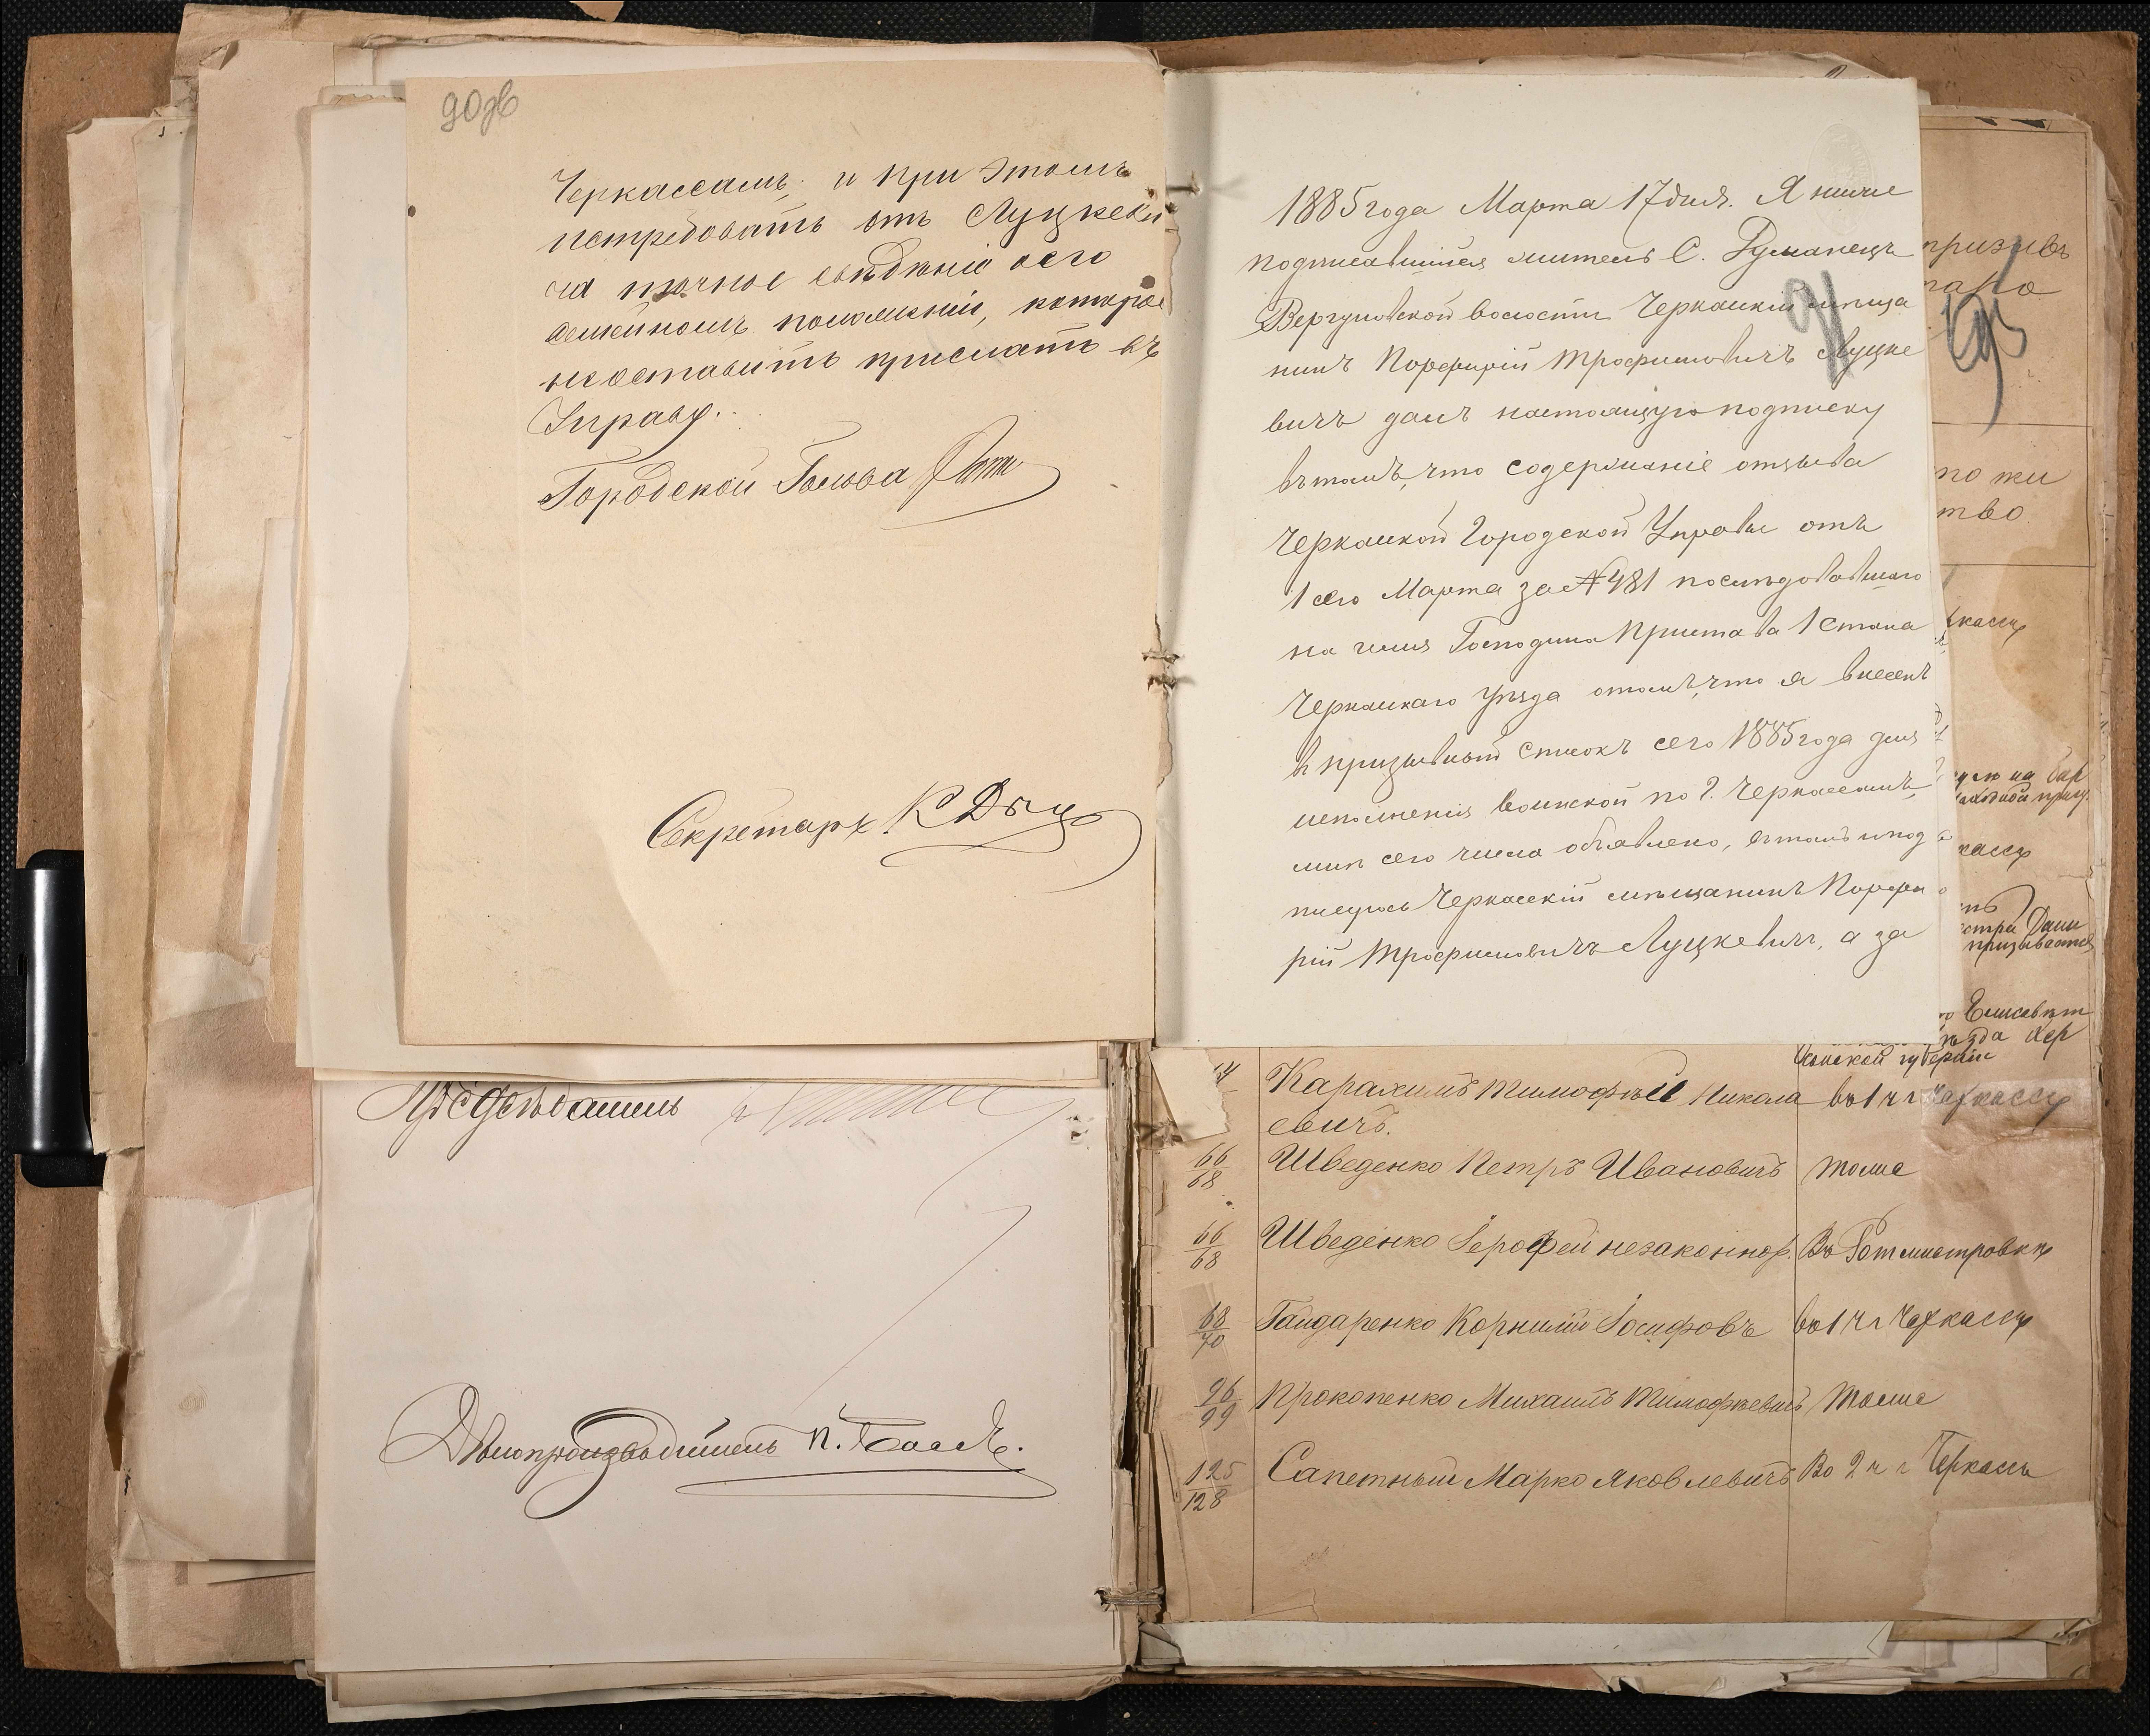 90об
Черкассамъ, и при этомъ
истребовать отъ Луцкеви
ча точное свѣдѣніе о его
семейномъ положеніи, которое
не оставить прислать въ
Управу.
Городской Голова
Секретарь
Предсѣдатель
Дѣлопроизводитель П.
91
1885 года Марта 17 дня. Я ниже
подписавшійся житель С. Думанецъ
Вергуновской волости Черкаскій мѣща
нинъ Порфирій Трофимовичъ Луцке
вичъ далъ настоящую подписку
въ томъ, что содержаніе отзыва
Черкаской Городской Управы отъ
1 сего Марта за № 481 последовавшаго
на имя Господина Пристава 1 стана
Черкаскаго уѣзда о томъ, что я внесенъ
в призывной списокъ сего 1885 года для
исполненія воинской по г. Черкассамъ
мнѣ сего числа объявлено, въ томъ и под
писуюсь Черкасскій мѣщанинъ Порфи
рій Трофимовичъ Луцкевичъ, а за
призывъ
но жи
тво
касы
касы
призывается
Елисавет
уѣзда Хер
сонской губерніи
14 Карахимъ Тимофѣй Никола во 1 ч г Черкассы
евичъ.
66/68 Шведенко Петръ Ивановичъ тоже
66/68 Шведенко Іерофей незаконнор. Въ Ротмистровкѣ
68/70 Гайдаренко Корнилій Іосифовъ во 1 ч г Черкассы
96/99 Прокопенко Михаилъ Тимофѣевичъ тоже
125/128 Сапетный Марко Яковлевичъ Во 2 ч г Черкассы